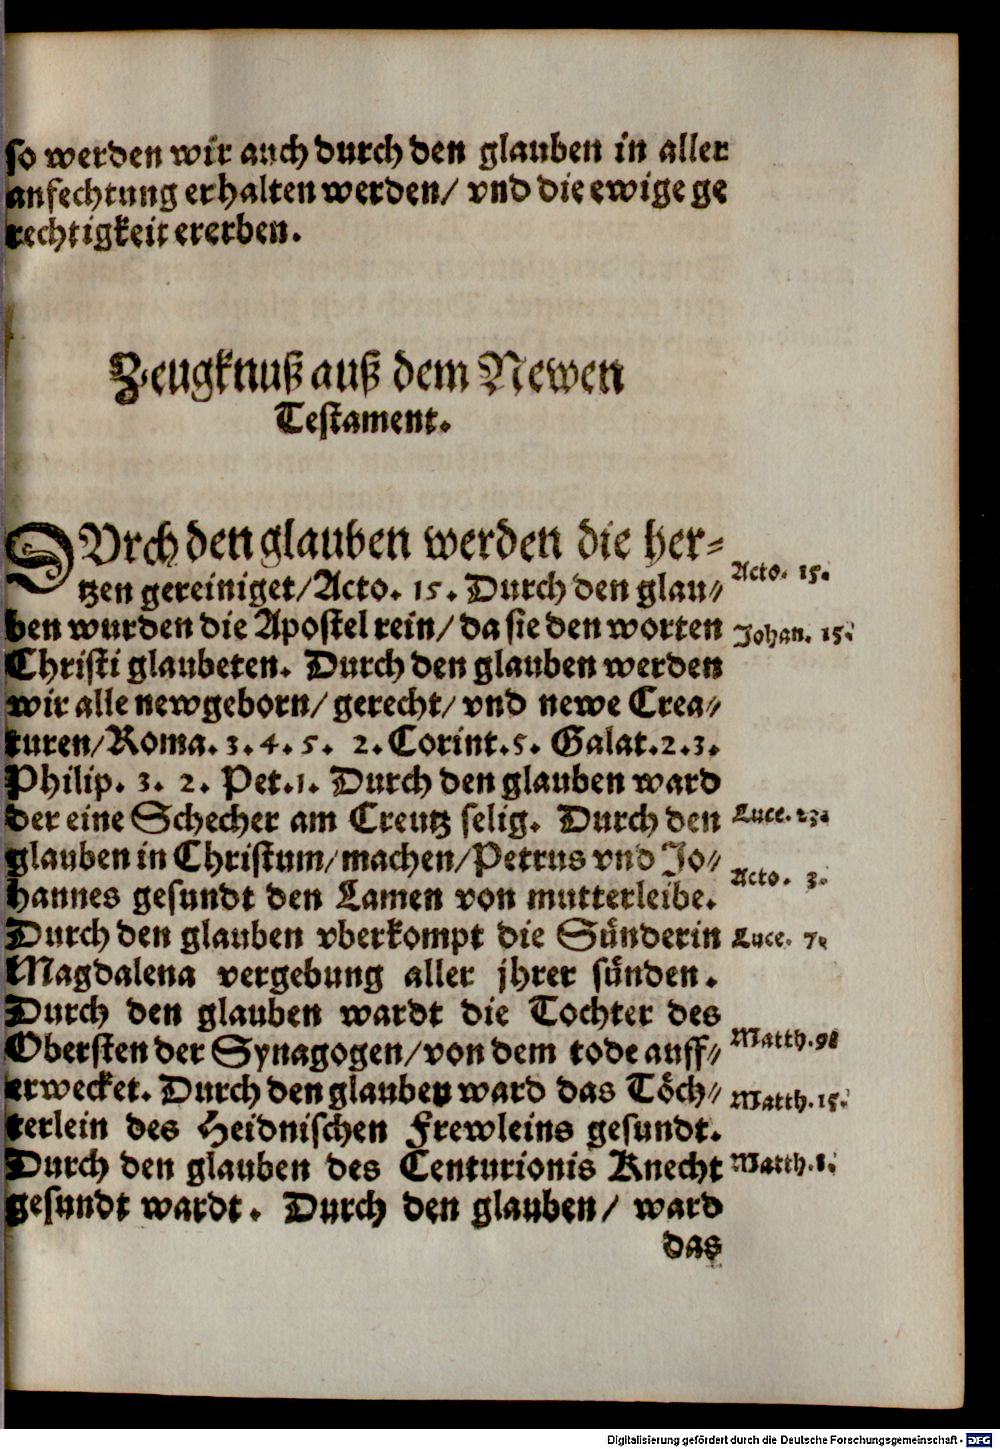 so werden wir auch durch den glauben in aller
anfechtung erhalten werden/ vnd die ewige ge
rechtigkeit ererben.
Zeugknuß auß dem Newen
Testament.
DVrch den glauben werden die her⸗
tzen gereiniget/Acto. 15. Durch den glau⸗
Acto. 15.
ben wurden die Apostel rein/ da sie den worten
Johan. 15.
Christi glaubeten. Durch den glauben werden
wir alle newgeborn/ gerecht/ vnd newe Crea⸗
turen/Roma. 3. 4. 5. 2. Corint. 5. Galat. 2. 3.
Philip. 3. 2. Pet. 1. Durch den glauben ward
der eine Schecher am Creutz selig. Durch den
Luce. 23.
glauben in Christum/ machen/ Petrus vnd Jo⸗
Acto. 3.
hannes gesundt den Lamen von mutterleibe.
Durch den glauben vberkompt die Sünderin
Luce. 7.
Magdalena vergebung aller jhrer sünden.
Durch den glauben wardt die Tochter des
Obersten der Synagogen/ von dem tode auff⸗
Matth. 9
erwecket. Durch den glauben ward das Töch⸗
Matth. 15.
terlein des Heidnischen Frewleins gesundt.
Durch den glauben des Centurionis Knecht
Matth. 8.
gesundt wardt. Durch den glauben/ ward
das
Digitalisierung gefördert durch die Deutsche Forschungsgemeinschaft - DFG